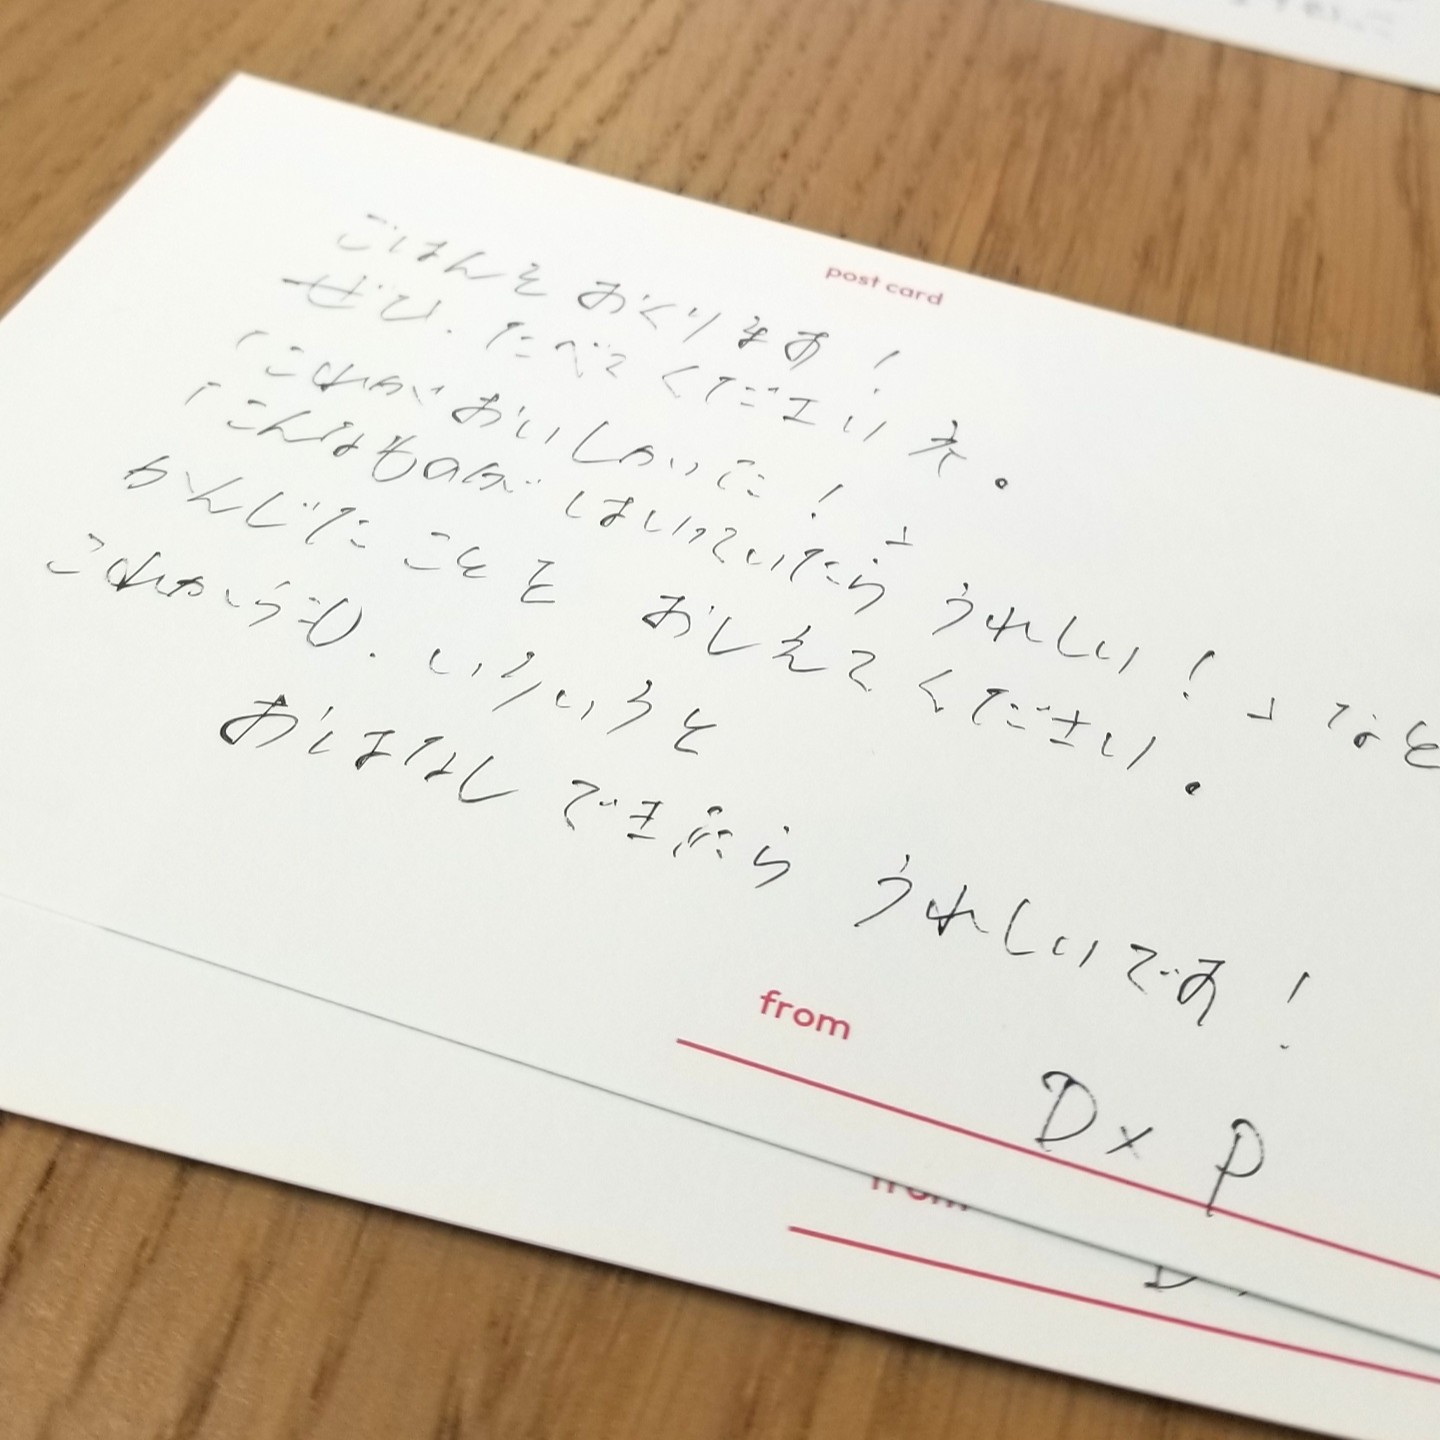 post card
ごはんを おくります!
ぜひ、たべてくださいネ。
「これがおいしかった!」
「こんなものが はいっていたら うれしい!」など
かんじたことを おしえてください。
これからも、いろいろと
おはなし できたら うれしいです!
from
D×P
from